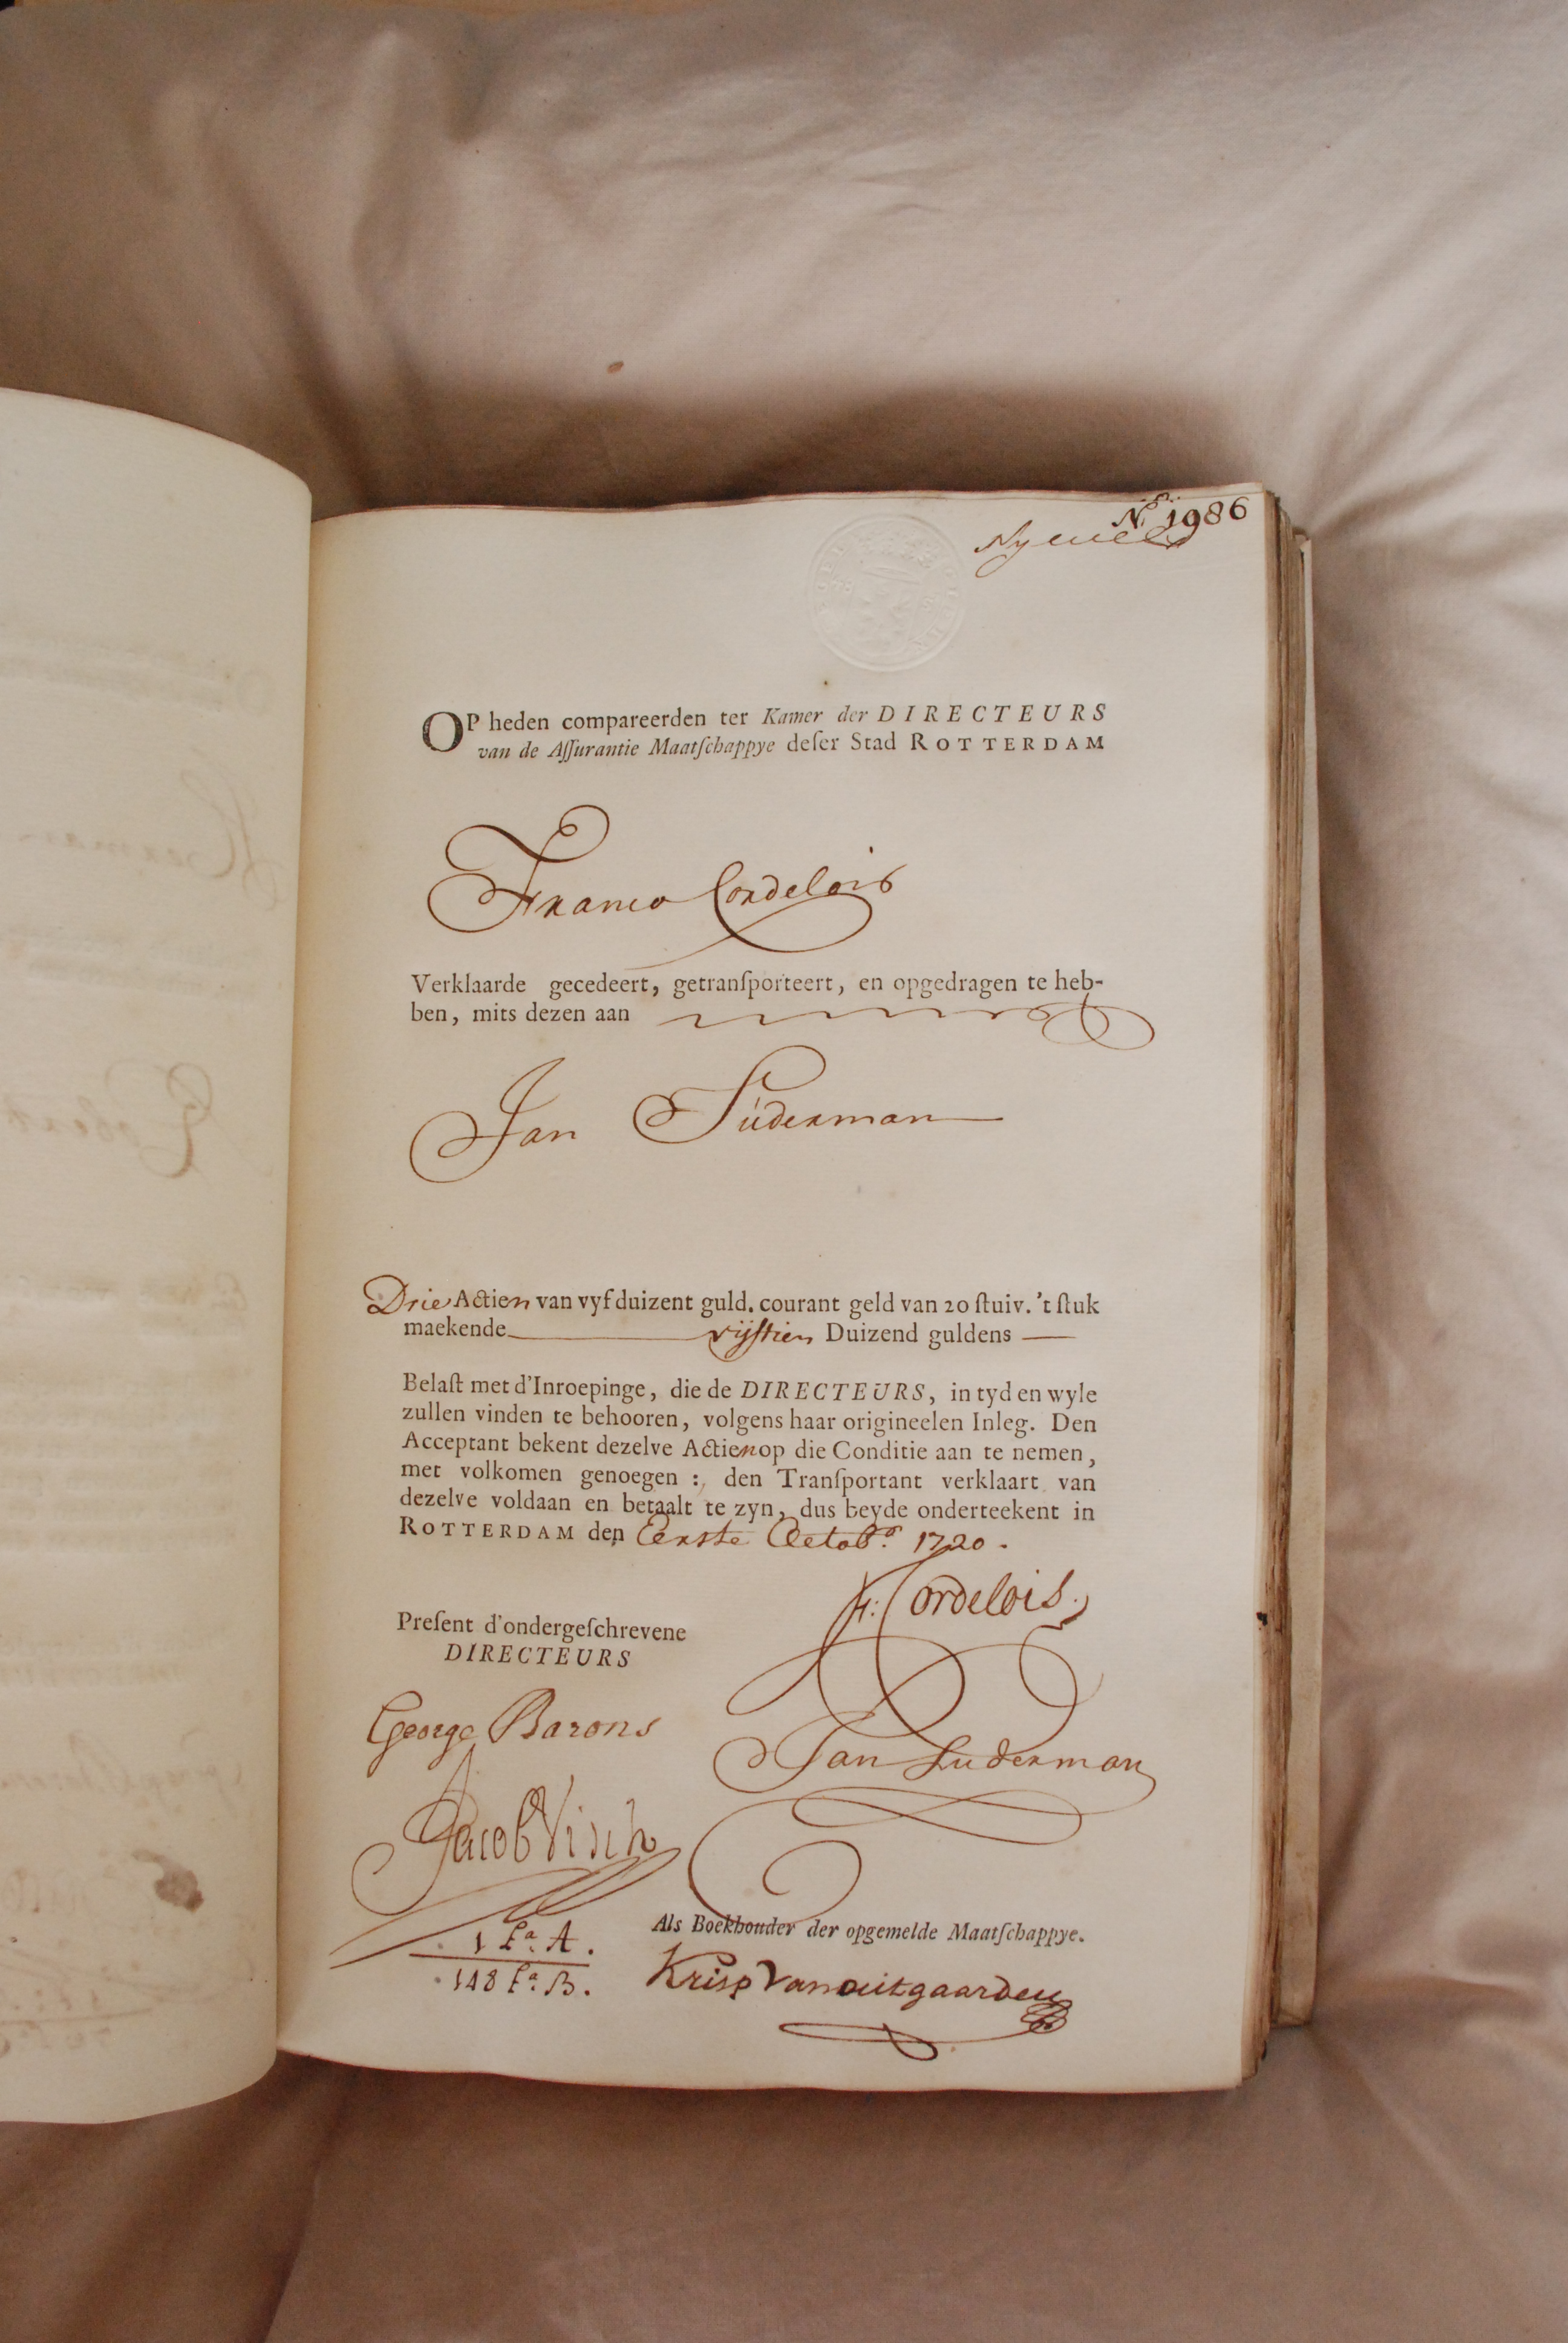 No. 1986
OP heden compareerden ter Kamer der DIRECTEURS
van de Aſſurantie Maatſchappye deſer Stad ROTTERDAM
Franco Cordelois
Verklaarde gecedeert, getranſporteert, en opgedragen te heb-
ben, mits dezen aan
Jan Súderman
Drie Actien van vyf duizent guld. courant geld van 20 ſtuiv. 't ſtuk
maekende vijftien Duizend guldens
Belaſt met d'Inroepinge, die de DIRECTEURS, in tyd en wyle
zullen vinden te behooren, volgens haar origineelen Inleg. Den
Acceptant bekent dezelve Actien op die Conditie aan te nemen,
met volkomen genoegen :, den Tranſportant verklaart van
dezelve voldaan en betaalt te zyn, dus beyde onderteekent in
ROTTERDAM den Eerste Octobr. 1720.
F: Cordelois.
Preſent d'ondergeſchrevene
DIRECTEURS
George Barons
Jan Suderman
Jacob Visch
Als Boekhouder der opgemelde Maatſchappye.
1 La. A.
148 La. B.
Krisp Vanouitgaarden